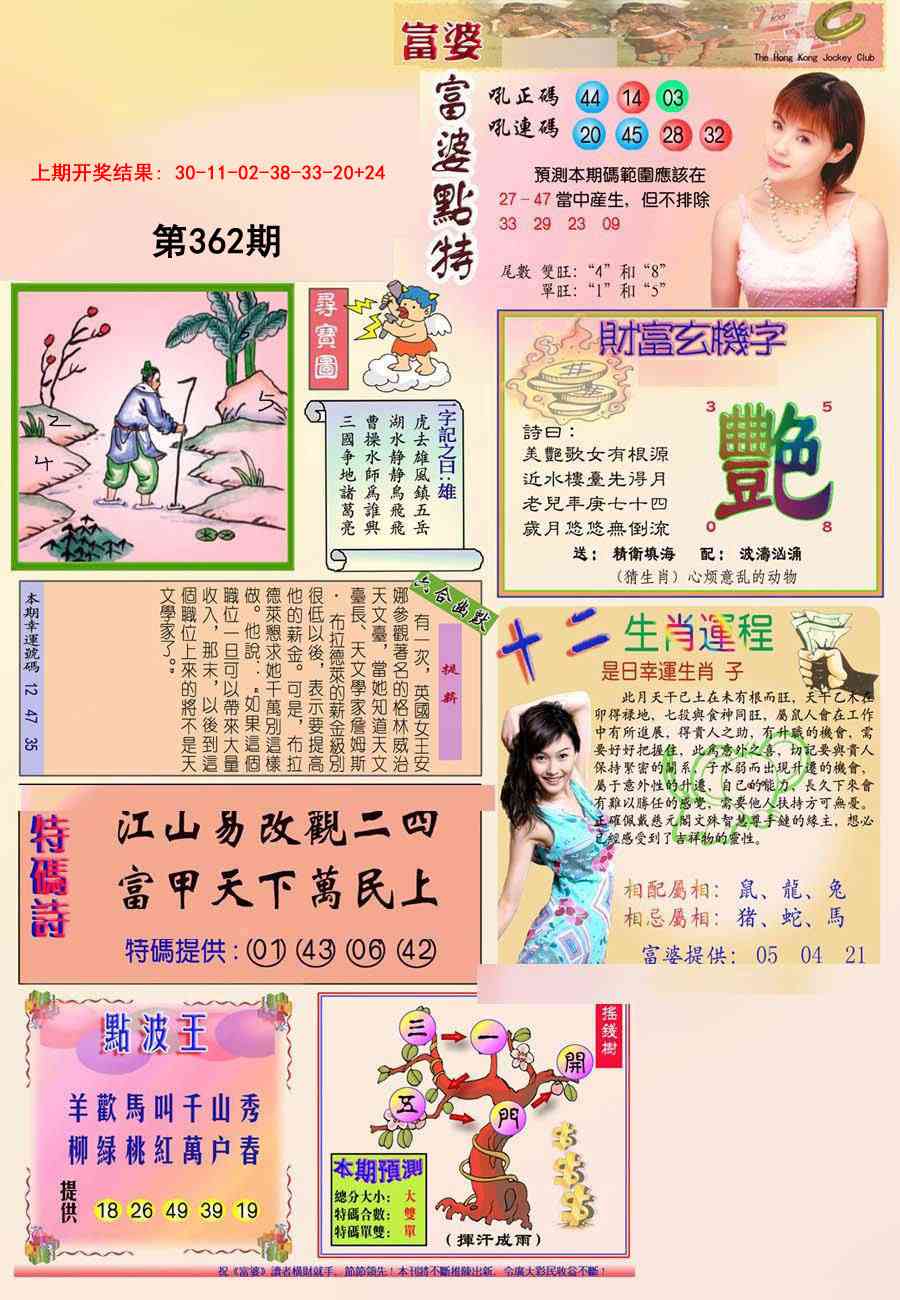 富婆
The Hong Kong Jockey Club
富婆點特
吼正碼 44 14 03
吼連碼 20 45 28 32
預測本期碼範圍應該在
27-47 當中産生，但不排除
33 29 23 09
尾數 雙旺：“4”和“8”
單旺：“1”和“5”
上期开奖结果：30-11-02-38-33-20+24
第362期
2
4
5
5
尋寶圖
一字記之曰：雄
虎去雄風鎮五岳
湖水静静鳥飛飛
曹操水師爲誰興
三國争地諸葛亮
財富玄機字
詩曰：
美艷歌女有根源
近水樓臺先得月
老兒年庚七十四
歲月悠悠無倒流
3 5
艷
0 8
送：精衛填海 配：波濤汹涌
（猜生肖）心烦意乱的动物
六合幽默
提薪
有一次，英國女王安
娜參觀著名的格林威治
天文臺，當她知道天文
臺長、天文學家詹姆斯
·布拉德萊的薪金級别
很低以後，表示要提高
他的薪金。可是，布拉
德萊懇求她千萬别這樣
做。他說：“如果這個
職位一旦可以帶來大量
收入，那末，以後到這
個職位上來的將不是天
文學家了。”
本期幸運號碼 12 47 35
十二生肖運程
是日幸運生肖 子
此月天干己土在未有根而旺，天干乙木在
卯得禄地，七殺與食神同旺，屬鼠人會在工作
中有所進展，得貴人之助，有升職的機會，需
要好好把握住，此爲意外之喜，切記要與貴人
保持緊密的關系，子水弱而出現升遷的機會，
屬于意外性的升遷，自己的能力，長久下來會
有難以勝任的感覺，需要他人扶持方可無憂。
正確佩戴慈元閣文殊智慧尊手鏈的緣主，想必
已經感受到了吉祥物的靈性。
相配屬相：鼠、龍、兔
相忌屬相：猪、蛇、馬
富婆提供：05 04 21
特碼詩
江山易改觀二四
富甲天下萬民上
特碼提供：01 43 06 42
點波王
羊歡馬叫千山秀
柳緑桃紅萬户春
提供 18 26 49 39 19
摇錢樹
三 一 開
五 門
本期預測
總分大小：大
特碼合數：雙
特碼單雙：單
（揮汗成雨）
祝《富婆》讀者横財就手，節節領先！本刊將不斷推陳出新，令廣大彩民收益不斷！